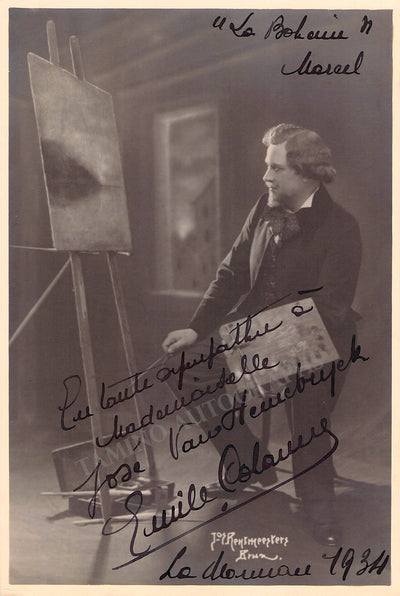 "La Bohême"
Marcel
En toute sympathie à
Mademoiselle
José Van Hemelryck
Emile Colonne
TAMINO AUTOGRAPHS
Jos Rentmeesters
Brux.
La Monnaie 1934